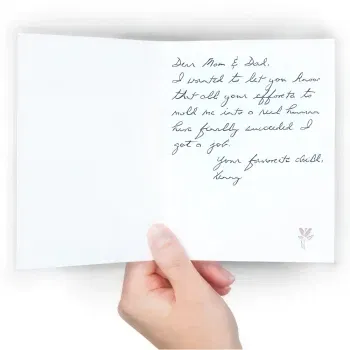 Dear Mom & Dad,
I wanted to let you know
that all your efforts to
mold me into a real human
have finally succeeded I
got a job.
Your favorite child,
Kenny